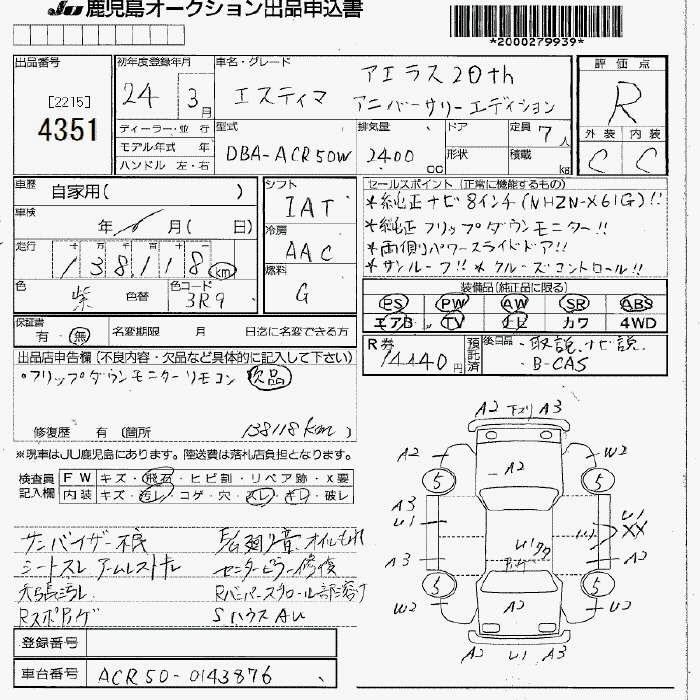 JU 鹿児島オークション出品申込書
*2000279939*
出品番号
[2215]
4351
初年度登録年月
24 3月
車名・グレード
エスティマ
アエラス20th
アニバーサリーエディション
評価点
R
外装 内装
C C
ディーラー・並行
モデル年式 年
ハンドル 左・右
型式
DBA-ACR50W
排気量
2400 cc
ドア
形状
定員 7人
積載 kg
車歴
自家用( )
車検
年 月( 日)
走行
十 万 千 百 十
138118 km
色
紫
色替
色コード
3R9
シフト
IAT
冷房
AAC
燃料
G
セールスポイント (正常に機能するもの)
*純正ナビ8インチ(NHZN-X61G)!!
*純正フリップダウンモニター!!
*両側パワースライドドア!!
*サンルーフ!! *クルーズコントロール!!
装備品(純正品に限る)
PS PW AW SR ABS
エアB TV ナビ カワ 4WD
保証書
有・無
名変期限 月 日迄に名変できる方
R券
14440円
預託済
後日品
・取説、ナビ説、
・B-CAS
出品店申告欄(不良内容・欠品など具体的に記入して下さい)
・フリップダウンモニターリモコン 欠品
138118km
修復歴 有 (箇所 )
※現車はJU鹿児島にあります。陸送費は落札店負担となります。
検査員
記入欄
FW キズ・飛石・ヒビ割・リペア跡・X要
内装 キズ・汚レ・コゲ・穴・スレ・ギレ・破レ
サンバイザー不良
シートスレ アームレストキレ
天張汚レ
オイルもれ
センターピラー修復
Sハウス AU
登録番号
車台番号
ACR50-0143876
A2 A3
A2 A2 W2
5 5
A3 U1 U1 XX
A3 A3
5 5
W2 A2 U2
A2 U1 A3